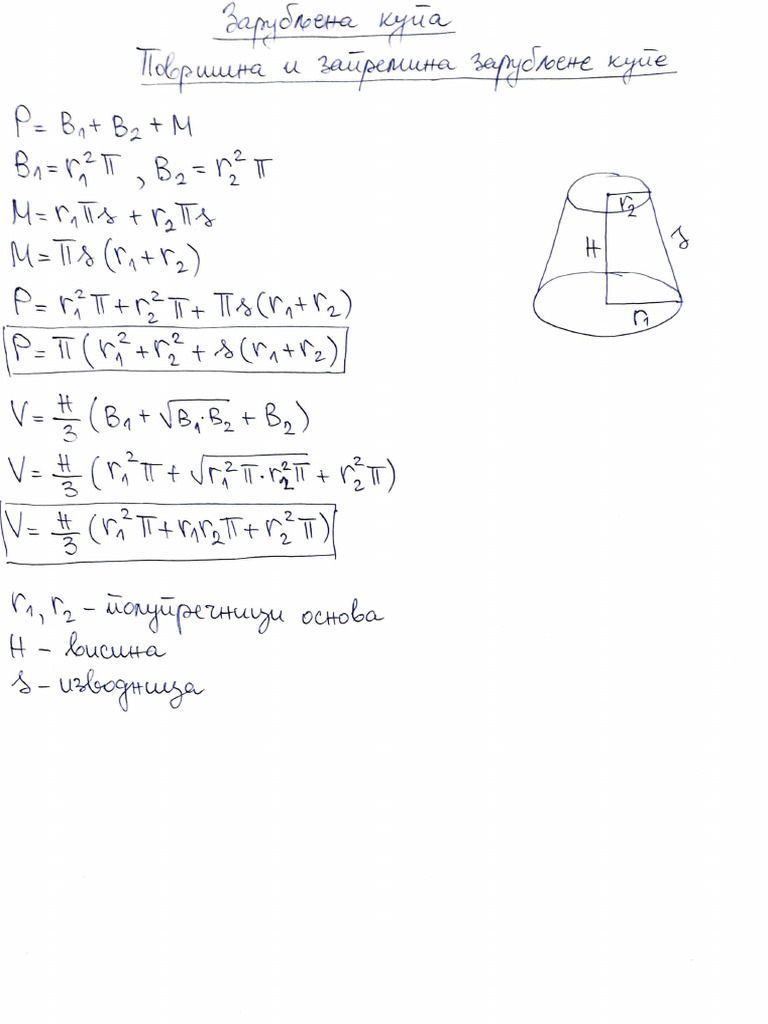 Зарубљена купа
Површина и запремина зарубљене купе
P = B₁ + B₂ + M
B₁ = r₁²π , B₂ = r₂²π
M = r₁πs + r₂πs
M = πs(r₁+r₂)
P = r₁²π + r₂²π + πs(r₁+r₂)
P = π(r₁²+r₂² + s(r₁+r₂)
V = H/3 (B₁ + √(B₁·B₂) + B₂)
V = H/3 (r₁²π + √(r₁²π·r₂²π) + r₂²π)
V = H/3 (r₁²π + r₁r₂π + r₂²π)
r₁, r₂ – полупречници основа
H – висина
s – изводница
r₂
H
s
r₁